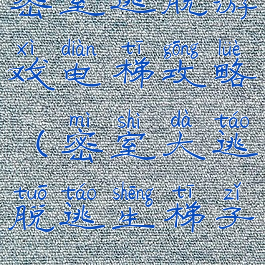 密室逃脱游
xì diàn tī gōng lüè
戏电梯攻略
mì shì dà táo
（密室大逃
tuō táo shēng tī zǐ
脱逃生梯子